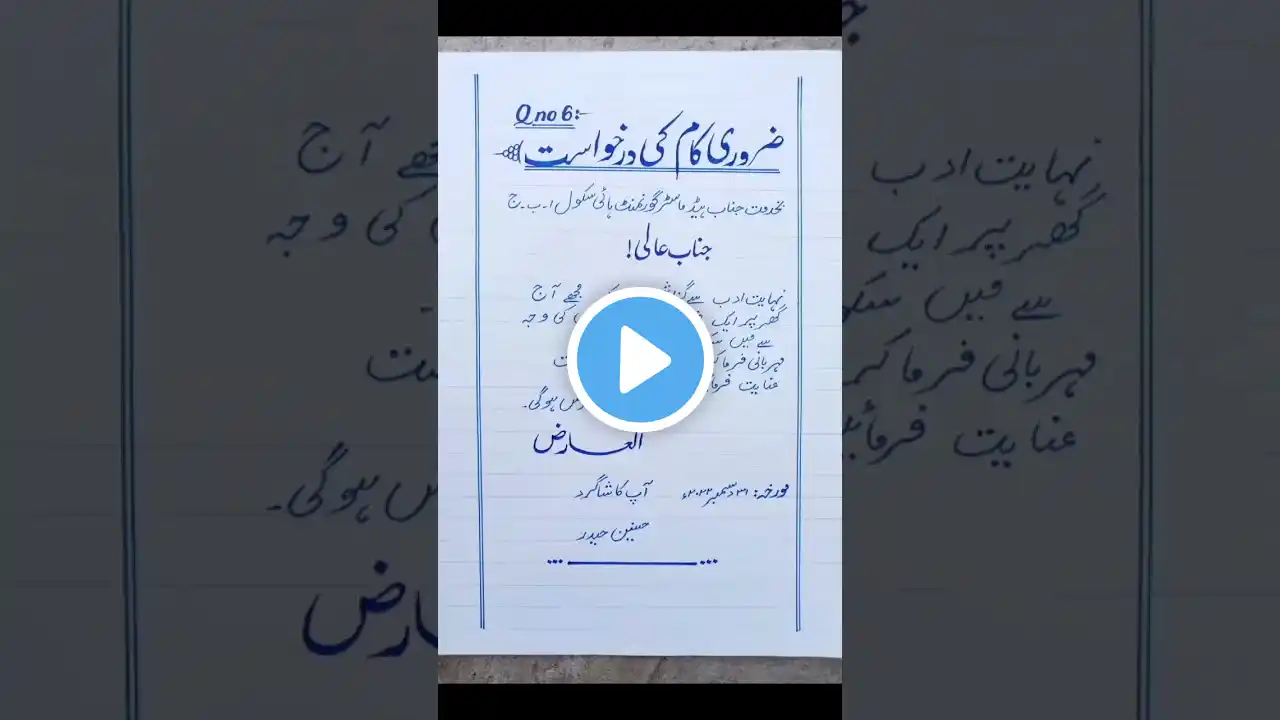 Q no 6:-
ضروری کام کی درخواست
بخدمت جناب ہیڈ ماسٹر گورنمنٹ ہائی سکول ا۔ب۔ج
جناب عالی!
نہایت ادب سے مجھے آج
گھر پر ایک کی وجہ
سے میں
مہربانی فرما کر
عنایت
ہوگی۔
العارض
مورخہ: ۳۱ دسمبر ۲۰۲۳ء آپ کا شاگرد
حسنین حیدر